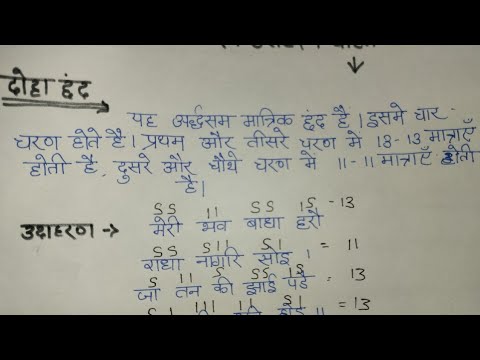 दोहा छंद
यह अर्द्धसम मात्रिक छंद है। इसमे चार
चरण होते है। प्रथम और तीसरे चरण मे 13-13 मात्राएँ
होती है, दुसरे और चौथे चरण मे 11-11 मात्राएँ होती
है।
SS II SS IS - 13
उदाहरण → मेरी भव बाधा हरौ
SS SII SI = 11
राधा नागरि सोइ ।
S II S SS IS = 13
जा तन की झाई पडे
S III II SI = 13